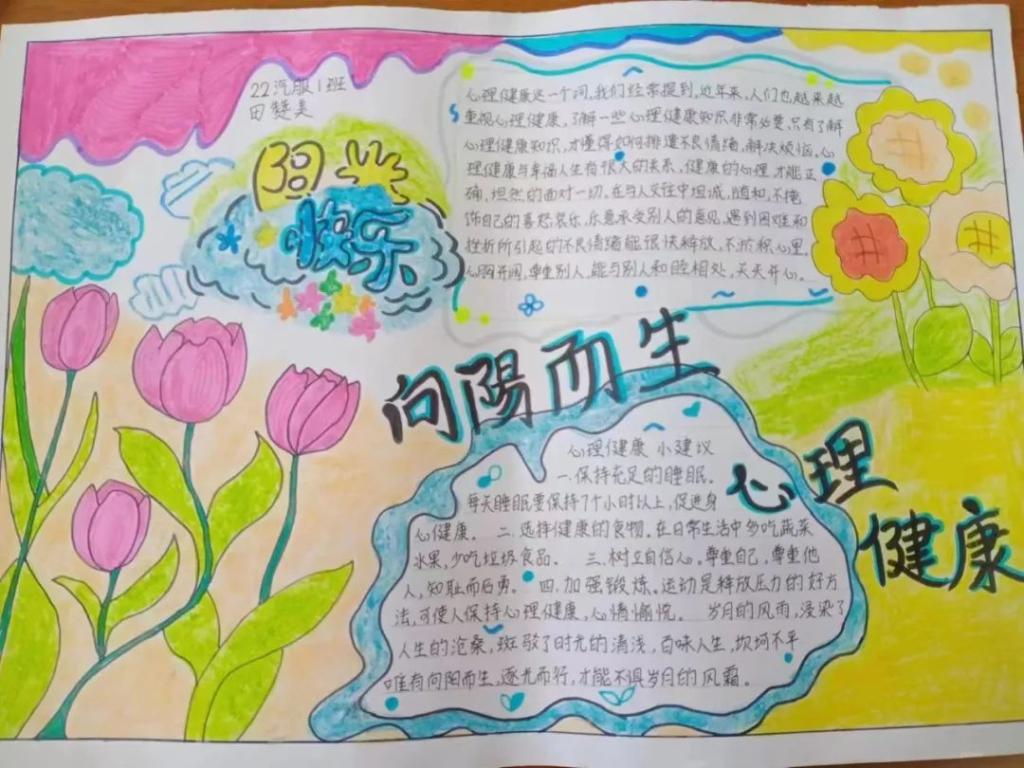 22汽服1班
田赞美
阳光
快乐
心理健康这一个词,我们经常提到,近年来,人们也越来越
重视心理健康,了解一些心理健康知识非常必要,只有了解
心理健康知识,才懂得如何排遣不良情绪,解决烦恼。心
理健康与幸福人生有很大的关系,健康的心理,才能正
确,坦然的面对一切。在与人交往中坦诚,随和,不掩
饰自己的喜怒哀乐,乐意承受别人的意见,遇到困难和
挫折所引起的不良情绪能很快释放,不淤积心里。
心胸开阔,尊重别人,能与别人和睦相处,天天开心。
向陽而生
心理
健康
心理健康 小建议
一.保持充足的睡眠。
每天睡眠要保持7个小时以上,促进身
心健康。 二.选择健康的食物。在日常生活中多吃蔬菜
水果,少吃垃圾食品。 三.树立自信心。尊重自己,尊重他
人,知耻而后勇。 四.加强锻炼。运动是释放压力的好方
法,可使人保持心理健康,心情愉悦。 岁月的风雨,浸染了
人生的沧桑,斑驳了时光的清浅,百味人生,坎坷不平
唯有向阳而生,逐光而行,才能不惧岁月的风霜。